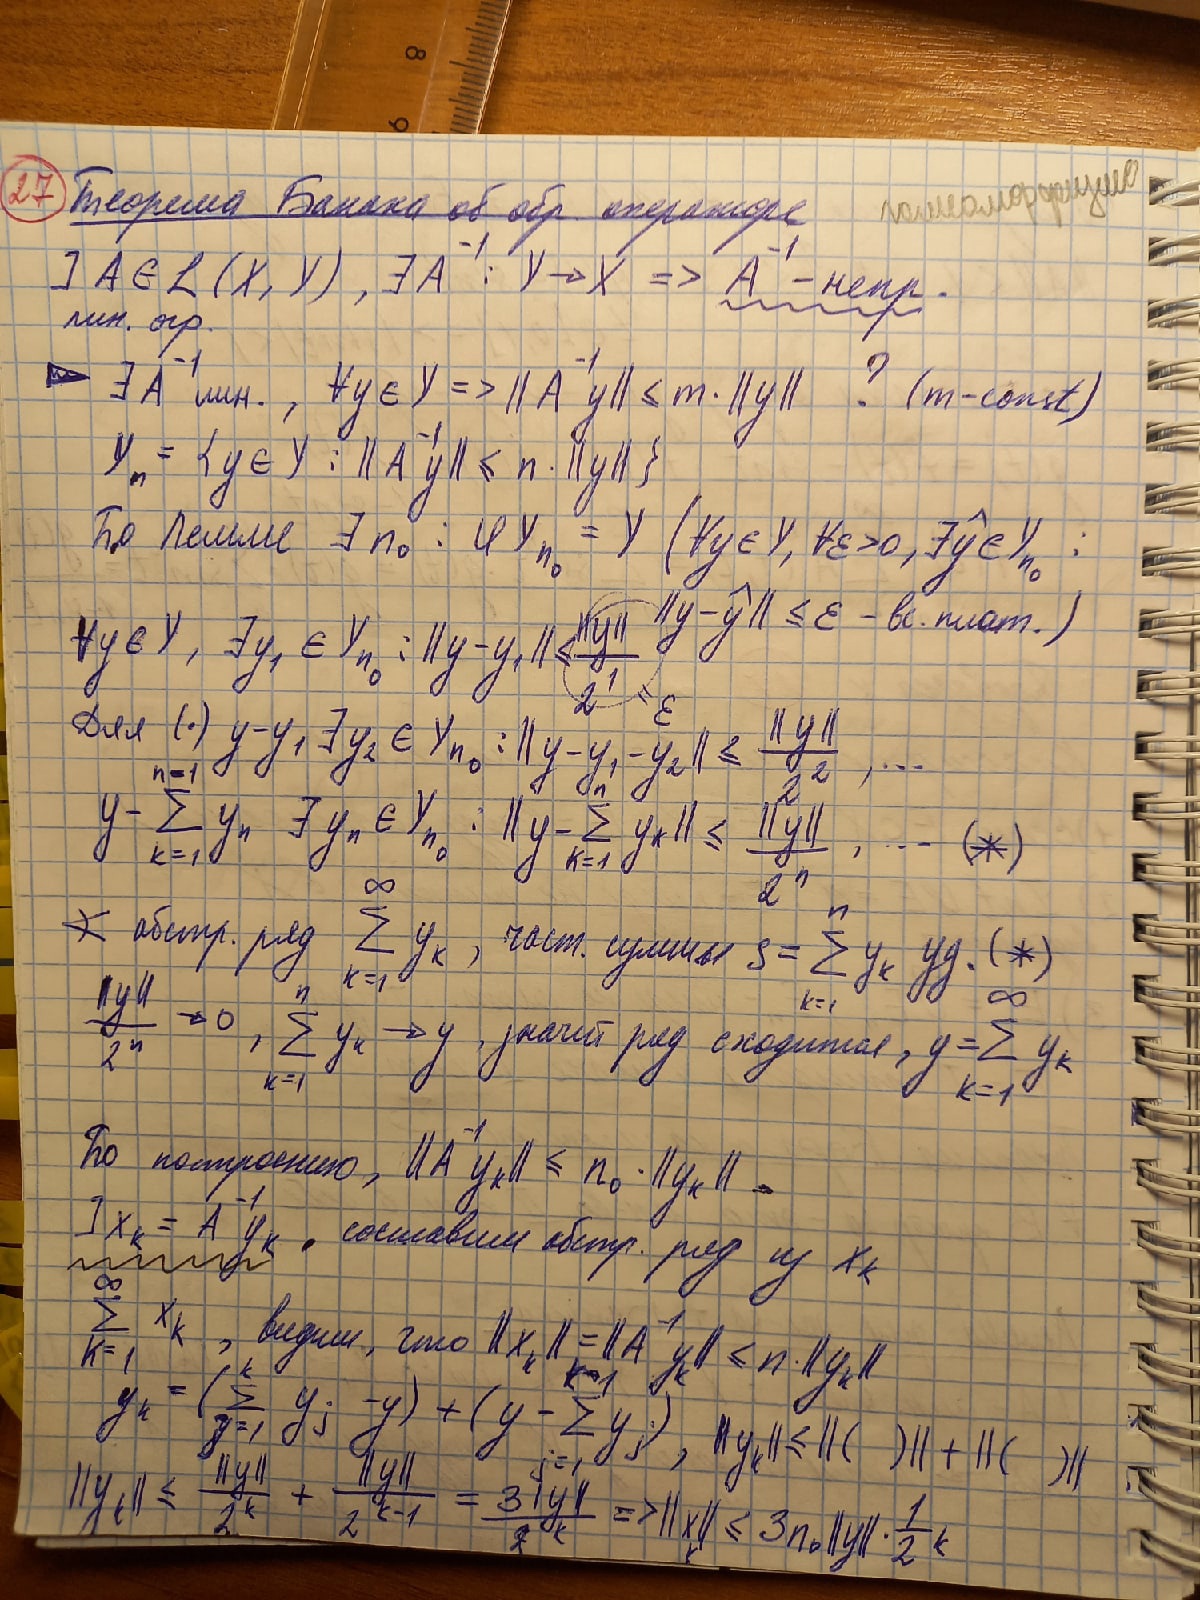 8
9
27 Теорема Банаха об обр. операторе
гомеоморфизма
] A ∈ L(X, Y), ∃ A⁻¹: Y → X => A⁻¹ – непр.
лин. огр.
▶ ∃ A⁻¹ лин., ∀y ∈ Y => ||A⁻¹y|| ≤ m·||y|| ? (m-const)
Yₙ = {y ∈ Y : ||A⁻¹y|| ≤ n·||y||}
По лемме ∃ n₀ : cl Yₙ₀ = Y (∀y ∈ Y, ∀ε>0, ∃ŷ ∈ Yₙ₀ :
||y-ŷ|| ≤ ε – вс. плот.)
∀y ∈ Y, ∃y₁ ∈ Yₙ₀ : ||y-y₁|| ≤ ||y||/2¹ = ε
Для (·) y-y₁ ∃y₂ ∈ Yₙ₀ : ||y-y₁-y₂|| ≤ ||y||/2², ...
y - ∑_{k=1}^{n=1} yₙ ∃yₙ ∈ Yₙ₀ : ||y - ∑_{k=1}^{n} yₖ|| ≤ ||y||/2ⁿ, ... (*)
абстр. ряд ∑_{k=1}^{∞} yₖ, част. суммы S = ∑_{k=1}^{n} yₖ уд. (*)
||y||/2ⁿ → 0, ∑_{k=1}^{n} yₖ → y, значит ряд сходится, y = ∑_{k=1}^{∞} yₖ
По построению, ||A⁻¹yₖ|| ≤ n₀·||yₖ||.
] xₖ = A⁻¹yₖ. составим абстр. ряд из xₖ
∑_{k=1}^{∞} xₖ, видим, что ||xₖ|| = ||A⁻¹yₖ|| ≤ n·||yₖ||
yₖ = (∑_{j=1}^{k} yⱼ - y) + (y - ∑_{j=1}^{k-1} yⱼ), ||yₖ|| ≤ ||( )|| + ||( )||
||yₖ|| ≤ ||y||/2ᵏ + ||y||/2ᵏ⁻¹ = 3||y||/2ᵏ => ||xₖ|| ≤ 3n₀||y||·1/2ᵏ